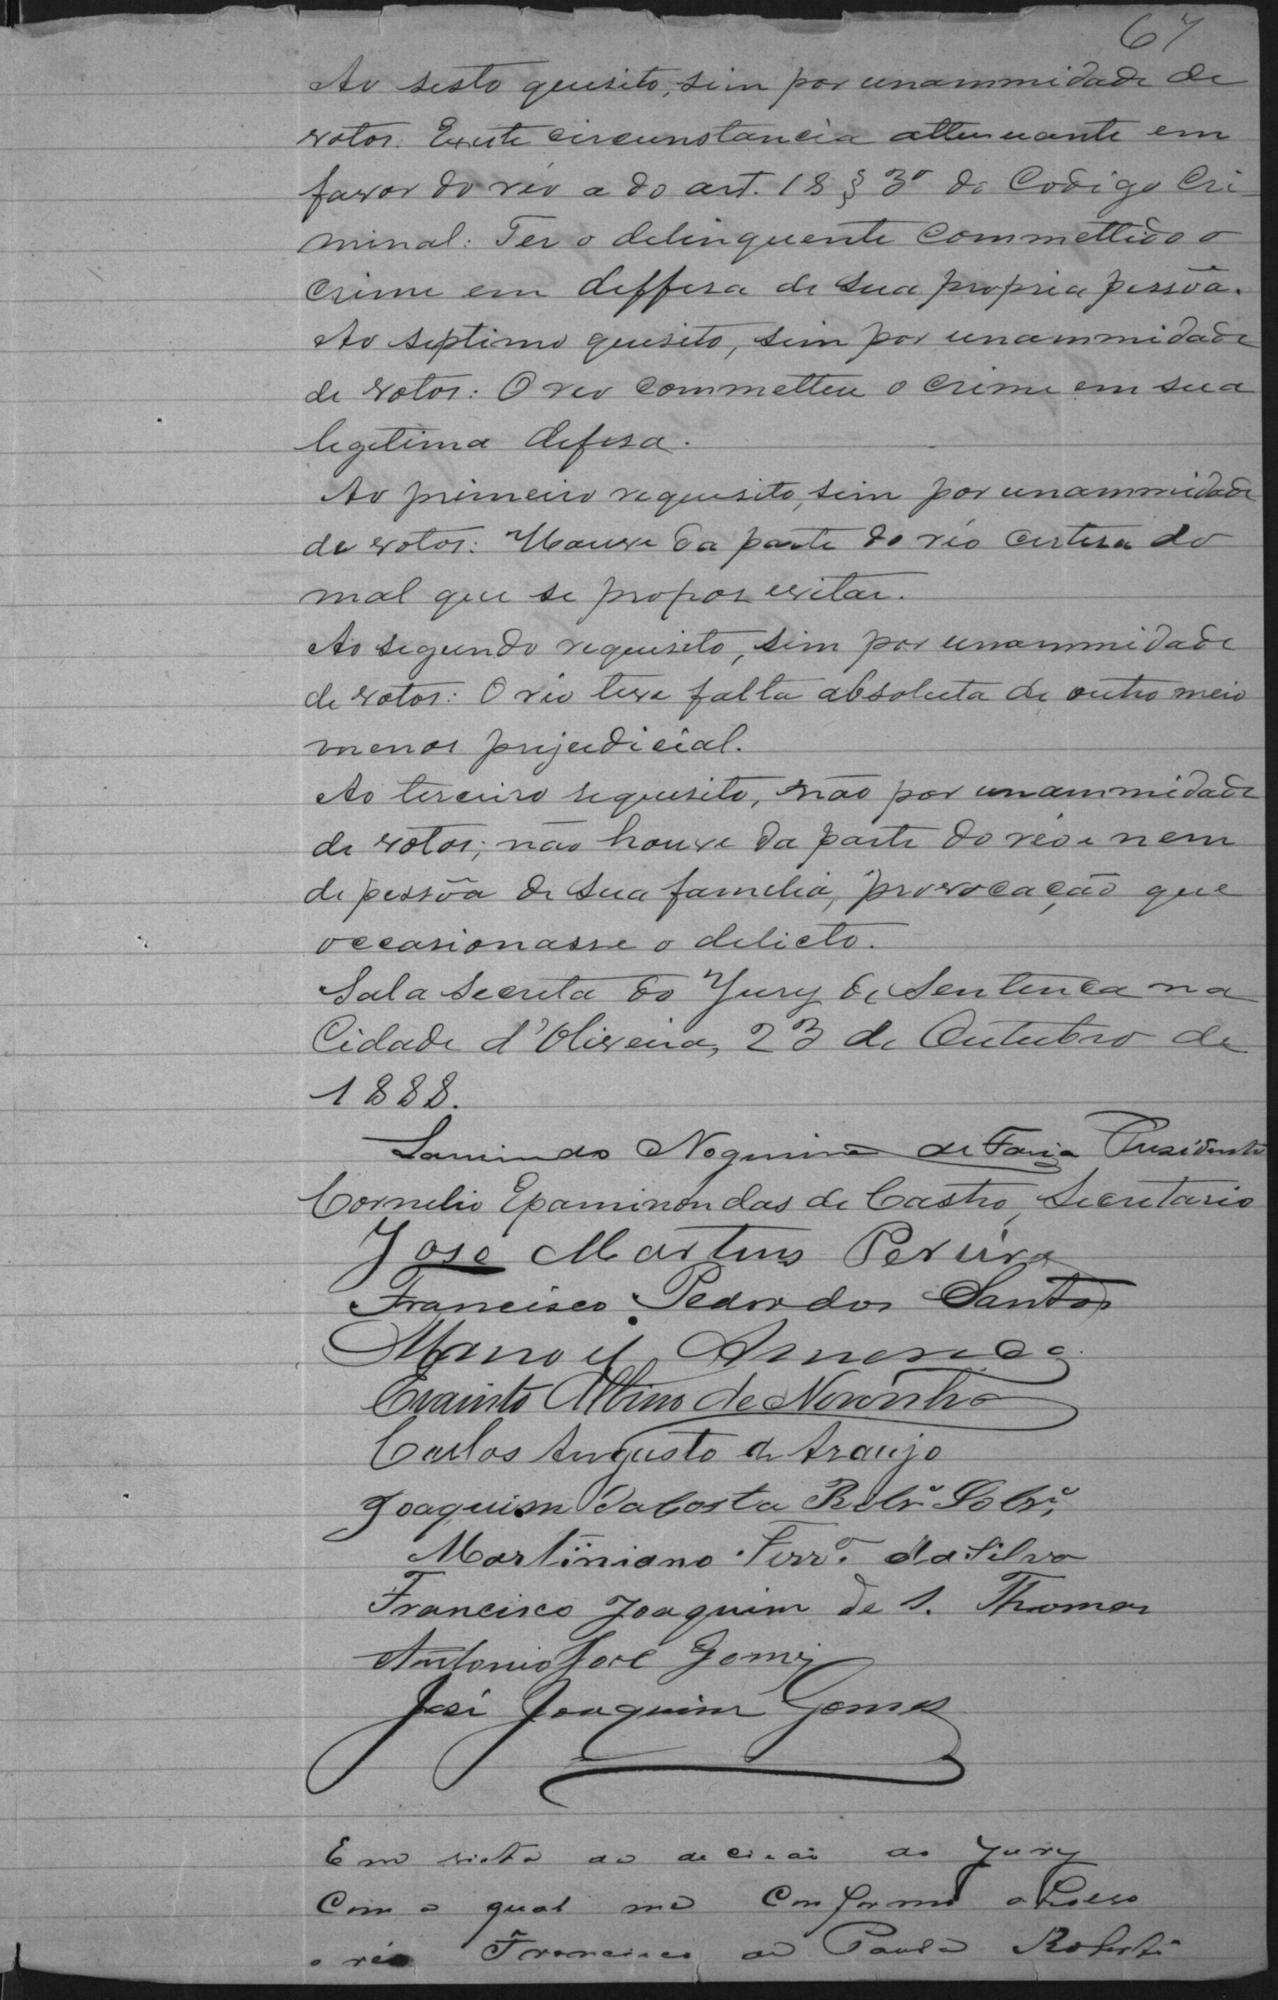 67
Ao sesto quesito, sim por unanimidade de
votos. Existe circumstancia attenuante em
favor do réo a do art. 18 § 3º do Codigo Cri-
minal: Ter o delinquente commettido o
crime em deffesa de sua propria pessõa.
Ao septimo quesito, sim por unanimidade
de votos: O reo commetteu o crime em sua
legitima defesa.
Ao primeiro requisito, sim por unanimidade
de votos: Houve da parte do réo certesa do
mal que se propos evitar.
Ao segundo requisito, sim por unanimidade
de votos: O réo teve falta absoluta de outro meio
menos prejudicial.
Ao terceiro requisito, não por unanimidade
de votos; não houve da parte do réo e nem
de pessõa de sua familia, provocação que
occasionasse o delicto.
Sala secreta do Jury de Sentença na
Cidade d'Oliveira, 23 de Outubro de
1888.
Nogueira de Faria Presidente
Cornelio Epaminondas de Castro, Secretario
José Martins Pereira
Francisco Pedro dos Santos
Manoel
Evaristo Albino de Noronha
Carlos Augusto de Araujo
Joaquim da Costa Ribrº Sobrº
Martiniano Ferrª da Silva
Francisco Joaquim de S. Thomas
Antonio José Gomes
José Joaquim Gomes
Em vista da decisão do Jury
Com a qual me conformo absolvo
o réo Francisco de Paula